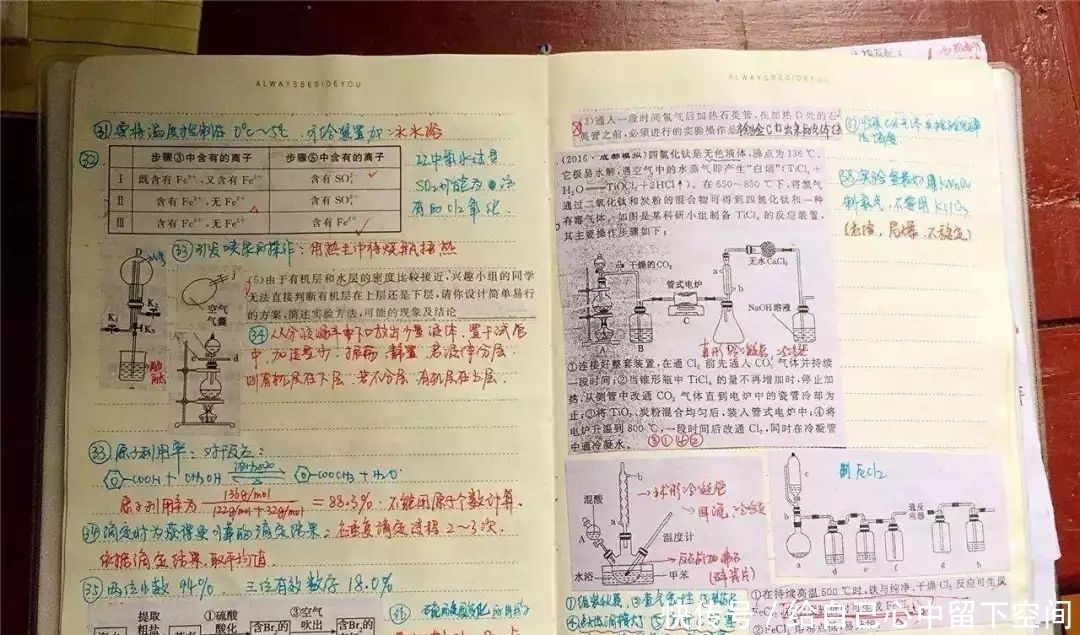 ALWAYSBESIDEYOU
㉛ 要将温度控制在0℃~5℃,
冰水浴
㉜
步骤③中含有的离子 步骤⑤中含有的离子
Ⅰ 既含有Fe³⁺,又含有Fe²⁺ 含有SO₄²⁻
Ⅱ 含有Fe³⁺,无Fe²⁺ 含有SO₄²⁻
Ⅲ 含有Fe²⁺,无Fe³⁺ 含有Fe²⁺
㉝ 引发喷泉的操作:用热毛巾将烧瓶捂热
K₁
K₂
K₃
空气
气囊
(5)由于有机层和水层的密度比较接近,兴趣小组的同学
无法直接判断有机层在上层还是下层,请你设计简单易行
的方案,简述实验方法,可能的现象及结论
㉞ 从分液漏斗下口放出少量液体,置于试管
中,加适量水,振荡,静置,若液体分层,
则有机层在下层,若不分层,有机层在上层.
㉝ 原子利用率:对于反应:
-COOH + CH₃OH ⇌ -COOCH₃ + H₂O
原子利用率为 136g/mol / 122g/mol+32g/mol = 88.3% 不能用原子个数计算.
㉞ 滴定时为获得更可靠的滴定结果:应重复滴定过程2~3次.
依据滴定结果,取平均值.
㉟ 两位小数 94% 三位有效数字 18.0%
提取 ①硫酸 ③空气
粗盐 酸化 含Br₂的 吹出 含Br₂的
ALWAYSBESIDEYOU
(3)通入一段时间氯气后加热石英管,在加热D处的石
英管之前,必须进行的实验操作是
(2016·成都模拟)四氯化钛是无色液体,沸点为136℃。
它极易水解,遇空气中的水蒸气即产生“白烟”(TiCl₄+
H₂O══TiOCl₂+2HCl↑)。在650~850℃下,将氯气
通过二氧化钛和炭粉的混合物可得到四氯化钛和一种
有毒气体。如图是某科研小组制备TiCl₄的反应装置,
其主要操作步骤如下:
干燥的CO₂
无水CaCl₂
管式电炉
NaOH溶液
A B C D
直形冷凝管,冷凝
①连接好整套装置,在通Cl₂前先通入CO₂气体并持续
一段时间;②当锥形瓶中TiCl₄的量不再增加时,停止加
热,从侧管中改通CO₂气体直到电炉中的瓷管冷却为
止;③将TiO₂、炭粉混合均匀后,装入管式电炉中;④将
电炉升温到800℃,一段时间后改通Cl₂,同时在冷凝管
中通冷凝水。 ③①④②
实验室最好用KMnO₄
制氧气,不要用KClO₃
混酸
球形冷凝管
回流,冷凝
温度计
水浴 甲苯
(碎瓷片)
制Cl₂
a b c d e f g h
①在持续高温500℃时,铁与纯净、干燥Cl₂反应可生成
快传号/给自己心中留下空间